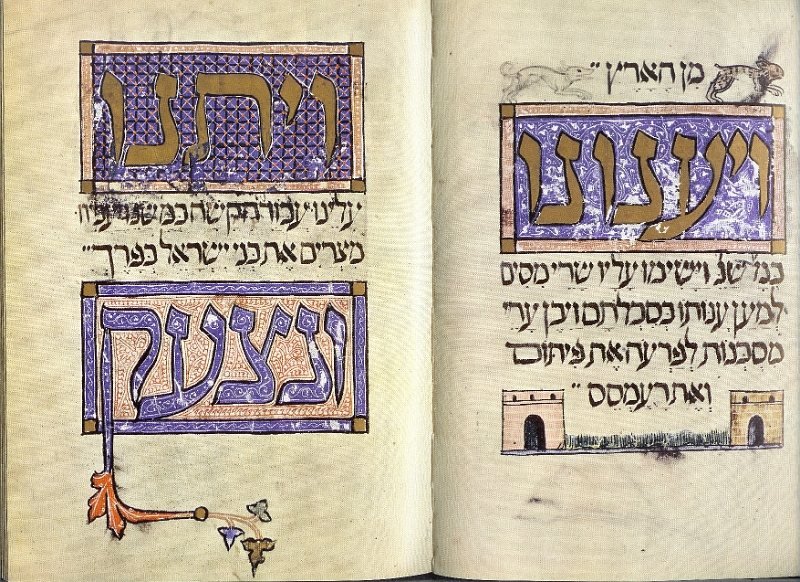 מן הארץ״
ויענונו
כמ שנ וישימו עליו שרי מסים
למען ענותו בסבלתם ויבן ערי
מסכנות לפרעה את פיתום
ואת רעמסס״
ויתנו
עלינו עבודה קשה כמ שנ
מצרים את בני ישראל בפרך״
ונצעק